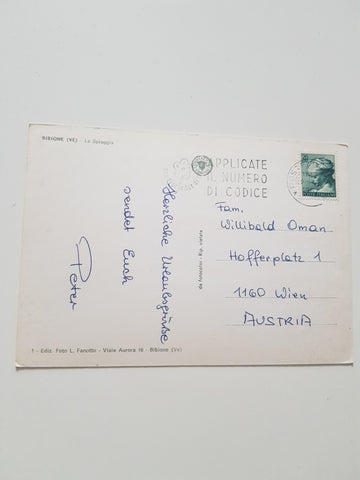 BIBIONE (VE) La Spiaggia
APPLICATE
IL NUMERO
DI CODICE
POSTE ITALIANE
Herzliche Urlaubsgrüsse
sendet Euch
Peter
Fam.
Willibald Oman
Hofferplatz 1
1160 Wien
AUSTRIA
1 - Ediz. Foto L. Fanotto - Viale Aurora 16 - Bibione (Ve)